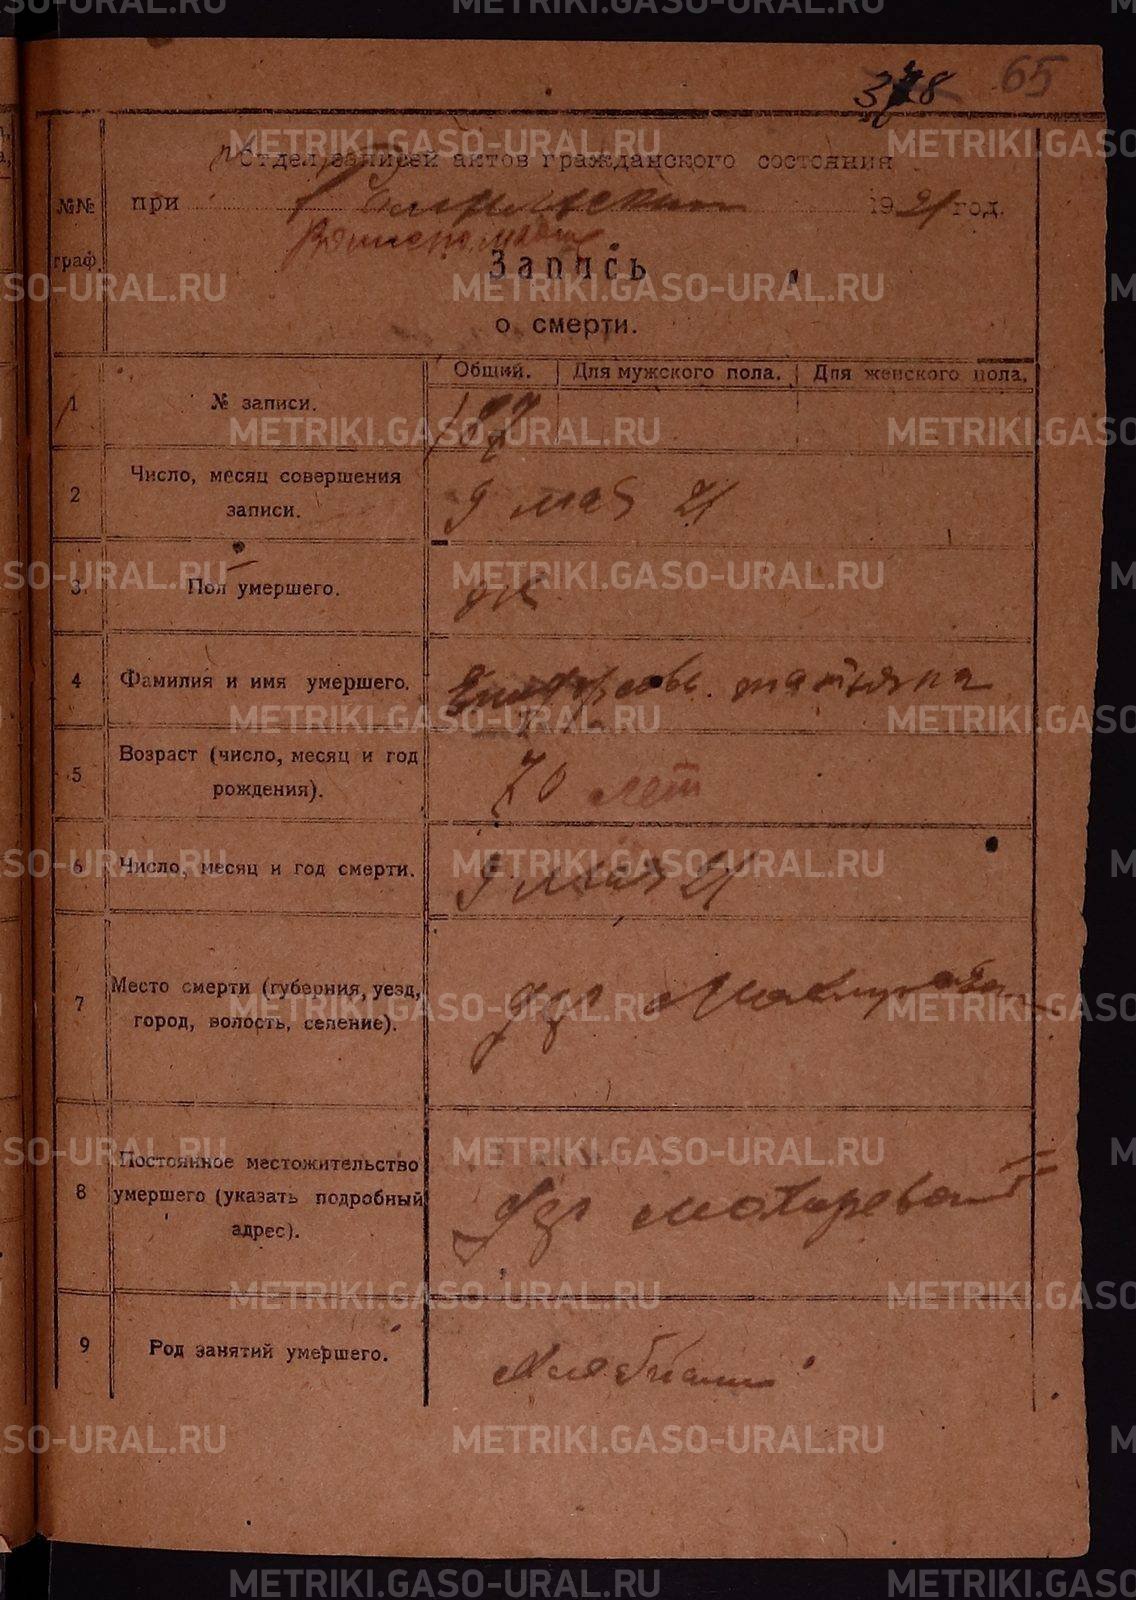 65
п/Отдел записей актов гражданского состояния
№№
граф.
при 1921 год.
Запись
о смерти.
Общий. Для мужского пола. Для женского пола.
1 № записи. 187
2 Число, месяц совершения
записи.
9 мая 21
3. Пол умершего. ж
4 Фамилия и имя умершего. татьяна
5 Возраст (число, месяц и год
рождения).
70 лет
6 Число, месяц и год смерти. 9 мая 21
7 Место смерти (губерния, уезд,
город, волость, селение).
дер
8 Постоянное местожительство
умершего (указать подробный
адрес).
дер
9 Род занятий умершего.
METRIKI.GASO-URAL.RU